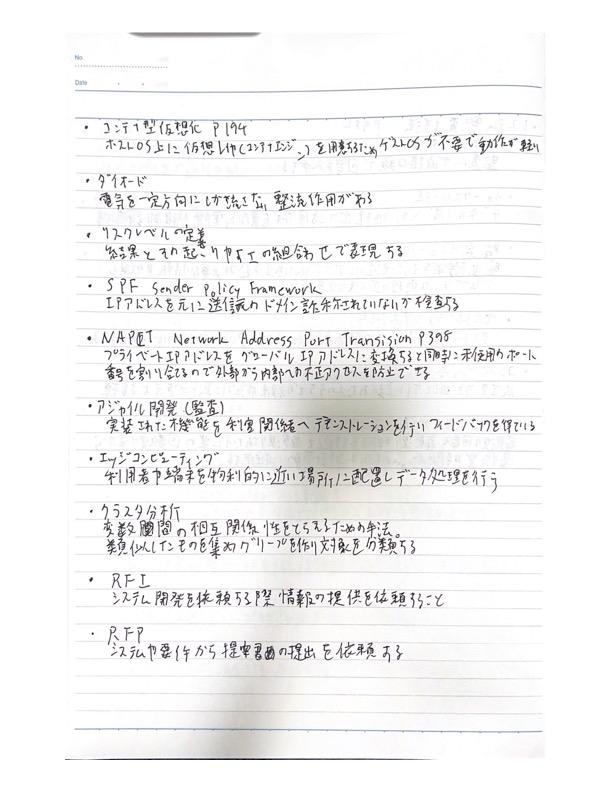 No.
Date
・コンテナ型仮想化 P194
ホストOS上に仮想レイヤ(コンテナエンジン)を用意するためゲストOSが不要で動作が軽い
・ダイオード
電気を一定方向にしか流さない, 整流作用がある
・リスクレベルの定義
結果とその起こりやすさの組合わせで表現する
・SPF Sender Policy Framework
IPアドレスを元に送信元のドメイン詐称されていないか検査する
・NAPT Network Address Port Transision P398
プライベートIPアドレスをグローバルIPアドレスに変換すると同時に未使用のポート
番号を割り当てるので外部から内部への不正アクセスを防止できる
・アジャイル開発(監査)
実装された機能を利害関係者へデモンストレーションを行いフィードバックを得ている
・エッジコンピューティング
利用者や端末を物利的に近い場所に配置しデータ処理を行う
・クラスタ分析
変数間の相互関係性をとらえるための手法。
類似したものを集めグループを作り対象を分類する
・RFI
システム開発を依頼する際情報の提供を依頼すること
・RFP
システムや要件から提案書の提出を依頼する